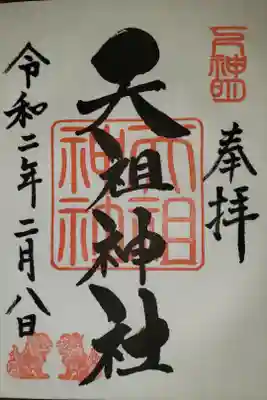 奉拝
天祖神社
天祖
神社
令和二年二月八日